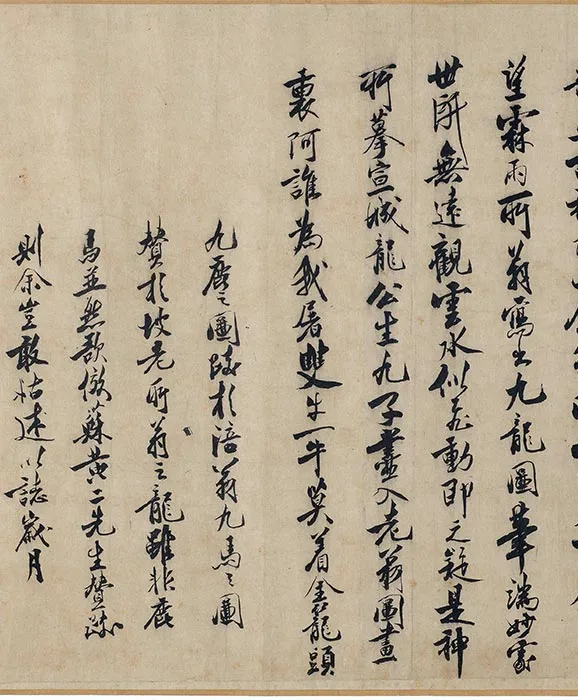 望霖雨所翁寫出九龍圖筆端妙處
世所無遠觀雲水似飛動即之疑是神
所摹宣城龍公生九子盡入老翁圖畫
裏阿誰為我屠雙牛一牛莫着金籠頭
九鹿之圖跋於涪翁九馬之圖
贊於坡老所翁之龍雖非鹿
馬並然欲倣蘇黃二先生贊跋
則余豈敢姑述以誌歲月